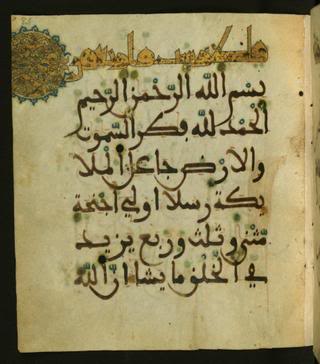 بسم الله الرحمن الرحيم
الحمد لله فطر السموت
والارض جاعل الملا
يكة رسلا اولي اجنحة
مثنى وثلث وربع يزيد
في الخلق ما يشا ان الله